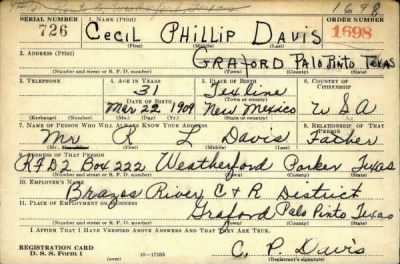 1698
SERIAL NUMBER 1. NAME (Print) ORDER NUMBER
726 CECIL PHILLIP DAVIS 1698
(First) (Middle) (Last)
2. ADDRESS (Print)
GRAFORD PALO PINTO TEXAS
(Number and street or R. F. D. number) (Town) (County) (State)
3. TELEPHONE 4. AGE IN YEARS 5. PLACE OF BIRTH 6. COUNTRY OF CITIZENSHIP
31 Texline
DATE OF BIRTH (Town or county)
Mar 22 1909 New Mexico U S A
(Exchange) (Number) (Mo.) (Day) (Yr.) (State or country)
7. NAME OF PERSON WHO WILL ALWAYS KNOW YOUR ADDRESS 8. RELATIONSHIP OF THAT PERSON
Mr L Davis Father
(Mr., Mrs., Miss) (First) (Middle) (Last)
9. ADDRESS OF THAT PERSON
RFD2 Box 222 Weatherford Parker Texas
(Number and street or R. F. D. number) (Town) (County) (State)
10. EMPLOYER'S NAME
Brazos River C & R District
11. PLACE OF EMPLOYMENT OR BUSINESS
Graford Palo Pinto Texas
(Number and street or R. F. D. number) (Town) (County) (State)
I AFFIRM THAT I HAVE VERIFIED ABOVE ANSWERS AND THAT THEY ARE TRUE.
REGISTRATION CARD
D. S. S. Form 1 16-17105 C. P. Davis
(Registrant's signature)